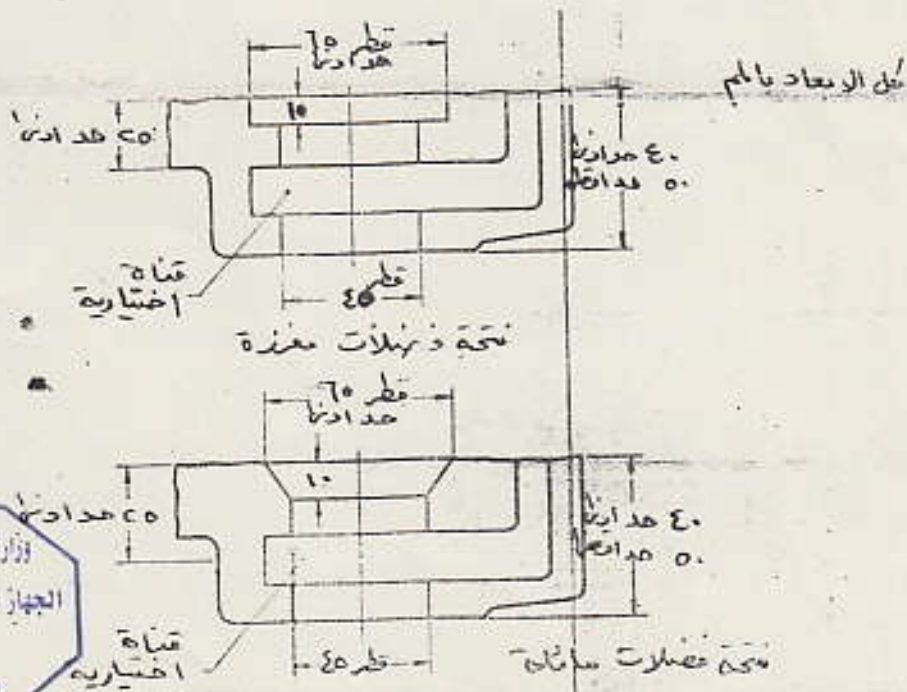 كل الابعاد بالملم
قطر ٦٥
حد ادنى
١٥
٢٥ حد ادنى
٤٠ حد ادنى
٥٠ حد اقصى
قناة
اختيارية
قطر
٤٥
فتحة فضلات مفرزة
قطر ٦٥
حد ادنى
١٠
٢٥ حد ادنى
٤٠ حد ادنى
٥٠ حد اقصى
وزار
الجهاز
قناة
اختيارية
قطر ٤٥
فتحة فضلات مائلة